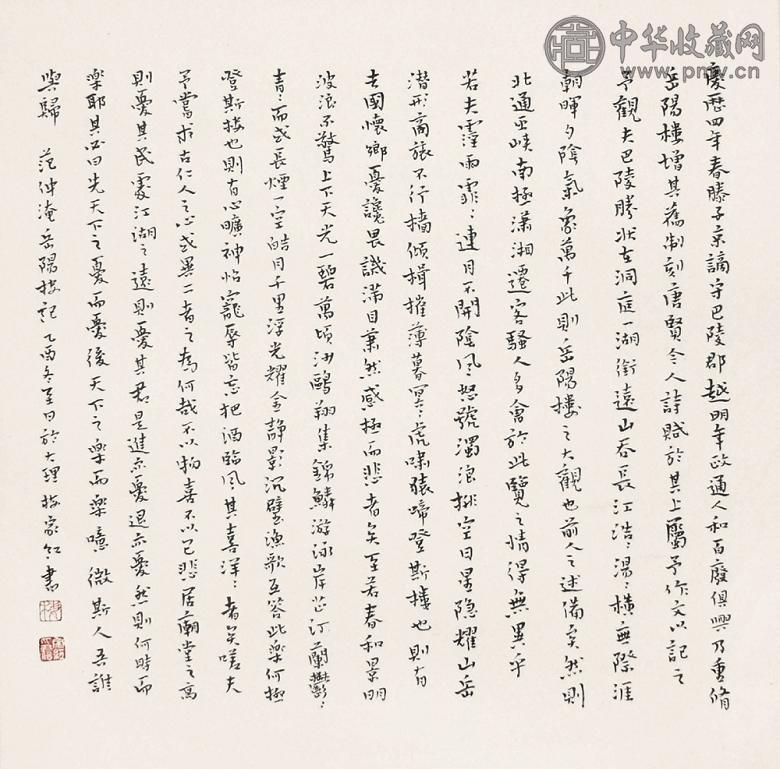 中华收藏网
www.pmv.cn
慶歷四年春滕子京謫守巴陵郡越明年政通人和百廢俱興乃重脩
岳陽樓增其舊制刻唐賢今人詩賦於其上屬予作文以記之
予觀夫巴陵勝狀在洞庭一湖銜遠山吞長江浩〻湯〻橫無際涯
朝暉夕陰氣象萬千此則岳陽樓之大觀也前人之述備矣然則
北通巫峽南極瀟湘遷客騷人多會於此覽之情得無異乎
若夫霪雨霏〻連月不開陰風怒號濁浪排空日星隐耀山岳
潛形商旅不行檣傾楫摧薄暮冥〻虎嘯猿啼登斯樓也則有
去國懷鄉憂讒畏譏滿目蕭然感極而悲者矣至若春和景明
波浪不驚上下天光一碧萬頃沙鷗翔集錦鱗游泳岸芷汀蘭鬱〻
青〻而或長煙一空皓月千里浮光耀金静影沉璧漁歌互答此樂何極
登斯樓也則有心曠神怡寵辱皆忘把酒臨風其喜洋〻者矣嗟夫
予嘗求古仁人之心或異二者之為何哉不以物喜不以己悲居廟堂之高
則憂其民處江湖之遠則憂其君是進亦憂退亦憂然則何時而
樂耶其必曰先天下之憂而憂後天下之樂而樂噫微斯人吾誰
與歸 范仲淹岳陽楼記 乙酉冬至日於大理 書